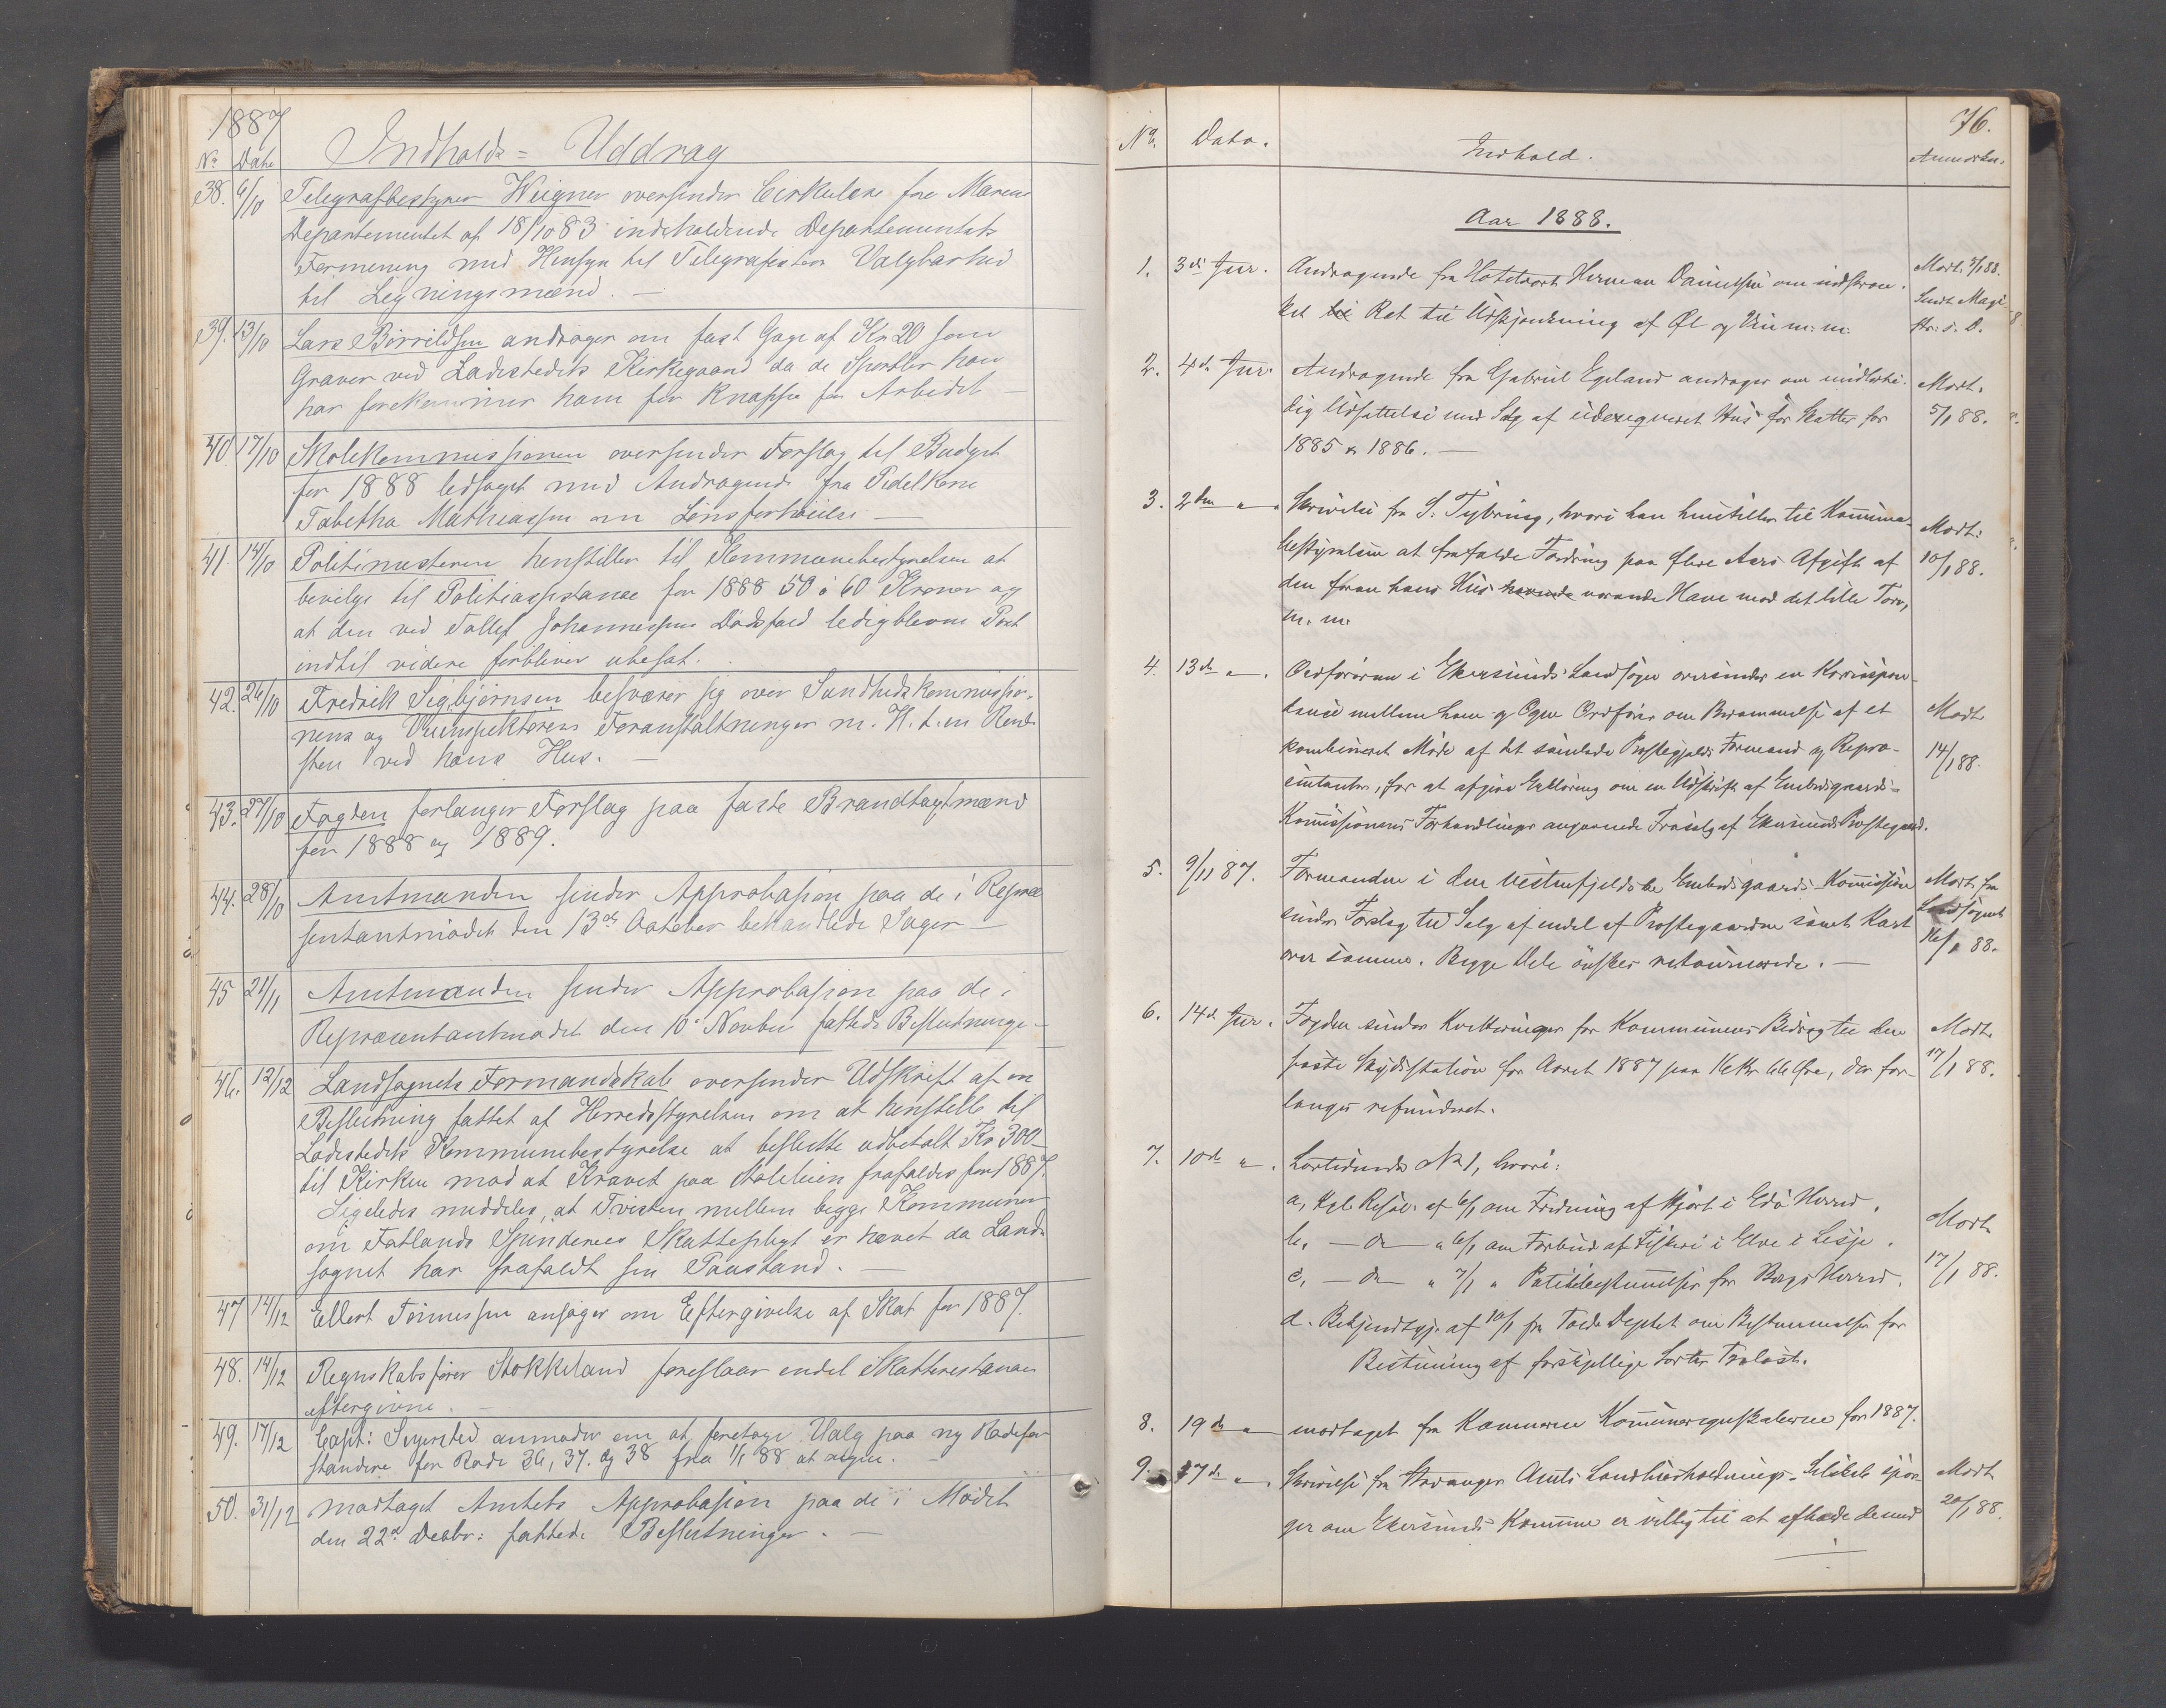 1887
No Date Indholds = Uddrag
38. 6/10 Telegrafbestyrer Wiigner oversender Cirkulære fra Marine
Departementet af 18/10 83 indeholdende Departementets
Formening med Hensyn til Telegrafisters Valgbarhed
til Ligningsmænd. —
39. 13/10 Lars Birrildsen andrager om fast Gage af Kr 20 som
Graver ved Ladestedets Kirkegaard da de Sportler han
har forekommer ham for knappe for Arbeidet —
40. 17/10 Skolekommissionen oversender Forslag til Budget
for 1888 ledsaget med Andragende fra
Tabetha Mathiassen om Lønsforhøielse —
41. 14/10 Politimesteren henstiller til Kommunebestyrelsen at
bevilge til Politiassistance for 1888 50 à 60 Kroner og
at den ved Tollef Johannessens Dødsfald ledigblevne Post
indtil videre forbliver ubesat.
42. 26/10 Fredrik Sigbjørnsen besværer sig over Sundhedskommissio-
nens og Veiinspektørens Foranstaltninger m. H. t. en Rend-
sten ved hans Hus. —
43. 27/10 Fogden forlanger Forslag paa faste Brandtagtmænd
for 1888 og 1889.
44. 28/10 Amtmanden sender Approbasion paa de i Repræ
sentantmødet den 13de October behandlede Sager —
45 21/11 Amtmanden sender Approbasion paa de i
Repræsentantmødet den 10 Novber fattede Beslutninge —
46. 12/12 Landsognets Formandskab oversender Udskrift af en
Beslutning fattet af Herredsstyrelsen om at henstille til
Ladestedets Kommunebestyrelse at beslutte udbetalt Kr 300
til Kirken mod at Kravet paa frafaldes for 1887.
Ligeledes meddeles, at Tvisten mellem begge Kommuner
om Fatlands Spinderies Skattepligt er hævet da Land-
sognet har frafaldt sin Paastand. —
47 14/12 Ellert Tønnessen ansøger om Eftergivelse af Skat for 1887.
48. 14/12 Regnskabsfører Stokkeland foreslaar endel Skatterestancer
eftergivne. —
49. 17/12 Capt: Segersted anmoder om at foretage Valg paa ny Rodefor
standere for Rode 36, 37. og 38 fra 1/1 88 at regne. —
50. 31/12 modtaget Amtets Approbasion paa de i Mødet
den 22de Decbr: fattede Beslutninger. —
76.
No. Dato. Indhold. Anmærkn.
Aar 1888.
1. 3die Jnr. Andragende fra Hotelvært Herman Danielsen om indskræn-
ket til Ret til Udskjænkning af Øl og Vin m: m:
Modt. 3/1 88.
Sendt Magi-
str: s. D.
2. 4de Jnr. Andragende fra Gabriel Egeland andrager om midlerti-
dig Udsættelse med Salg af udexequeret Hus for Skatter for
1885 & 1886. —
Modt.
5/1 88.
3. 2den " Skrivelse fra S. Tybring, hvori han henstiller til Kommune-
bestyrelsen at frafalde Fordring paa flere Aars Afgift af
den foran hans Hus havende værende Have mod det lille Torv,
m. m.
Modt:
10/1 88.
4. 13de " Ordføreren i Ekersunds Landsogn oversender en Korrespon-
dance mellem ham og Ogne Ordfører om Berammelse af et
kombineret Møde af det samlede Præstegjelds Formænd og Repræ-
sentanter, for at afgive Erklæring om en Udskrift af Embedsgaards-
Komissionens Forhandlinger angaaende Frasalg af Ekersunds Præstegaard.
Modt
14/1 88.
5. 9/11 87. Formanden i den Vestenfjeldske Embedsgaards-Komission
sender Forslag til Salg af endel af Præstegaarden samt Kart
over samme. Begge Dele ønskes retournerede. —
Modt. fra
Landsognet
16/1 88.
6. 14de Jnr. Fogden sender Kvitteringer for Kommunens Bidrag til den
faste Skydsstation for Aaret 1887 paa 16 Kr 66 Øre, der for-
langes refunderet.
Modt.
17/1 88.
7. 10de " Lovtidende No 1, hvori:
a, Kgl. Resol. af 6/1 om Fredning af Hjort i Edø Herred.
b, — do — " 6/1 om Forbud af Fiskeri i Elve i Lesje.
c, — do — " 7/1 " Politibestemmelser for Borgs Herred.
d. Bekjendtgj. af 10/1 fra Told Deptet om Bestemmelser for
Bestemning af forskjellige Sorter Trælast.
Modt
17/1 88.
8. 19de " modtaget fra Kæmneren Kommuneregnskaberne for 1887.
9. 17de " Skrivelse fra Stavanger Amts Landhusholdnings-Selskab spør-
ger om Ekersunds Kommune er villig til at afholde de med
Modt
20/1 88.